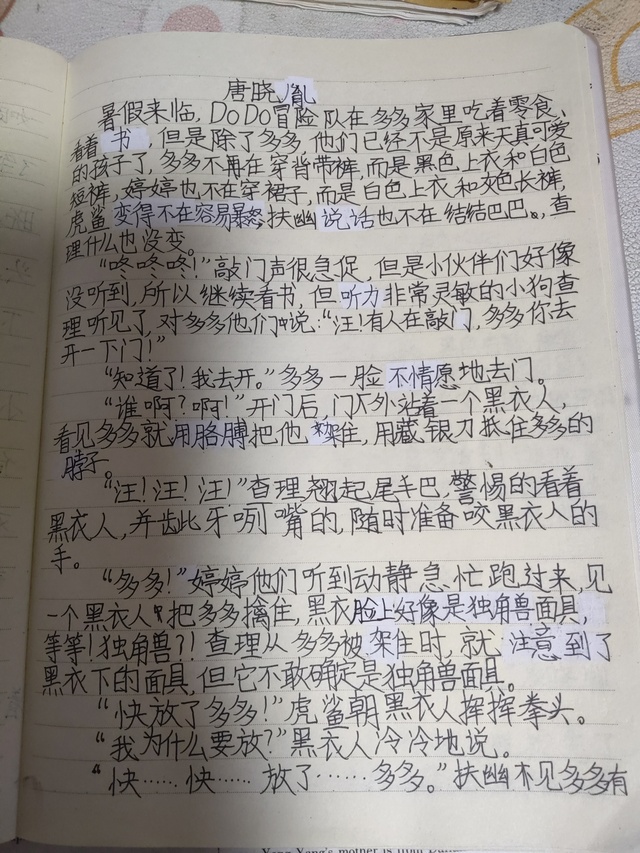 唐晓胤
暑假来临，DoDo冒险队在多多家里吃着零食，
看着书，但是除了多多，他们已经不是原来天真可爱
的孩子了，多多不再在穿背带裤，而是黑色上衣和白色
短裤，婷婷也不在穿裙子，而是白色上衣和灰色长裤，
虎鲨变得不在容易暴怒，扶幽说话也不在结结巴巴。，查
理什么也没变。
“咚咚咚！”敲门声很急促，但是小伙伴们好像
没听到，所以继续看书，但听力非常灵敏的小狗查
理听见了，对多多他们说：“汪！有人在敲门，多多你去
开一下门！”
“知道了！我去开。”多多一脸不情愿地去门。
“谁啊？啊！”开门后，门外站着一个黑衣人，
看见多多就用胳膊把他架住，用藏银刀抵住多多的
脖子。
“汪！汪！汪！”查理翘起尾巴，警惕的看着
黑衣人，并龇牙咧嘴的，随时准备咬黑衣人的
手。
“多多！”婷婷他们听到动静急忙跑过来，见
一个黑衣人把多多擒住，黑衣脸上好像是独角兽面具，
等等！独角兽？！查理从多多被架住时，就注意到了
黑衣下的面具，但它不敢确定是独角兽面具。
“快放了多多！”虎鲨朝黑衣人挥挥拳头。
“我为什么要放？”黑衣人冷冷地说。
“快……快……放了……多多。”扶幽不见多多有